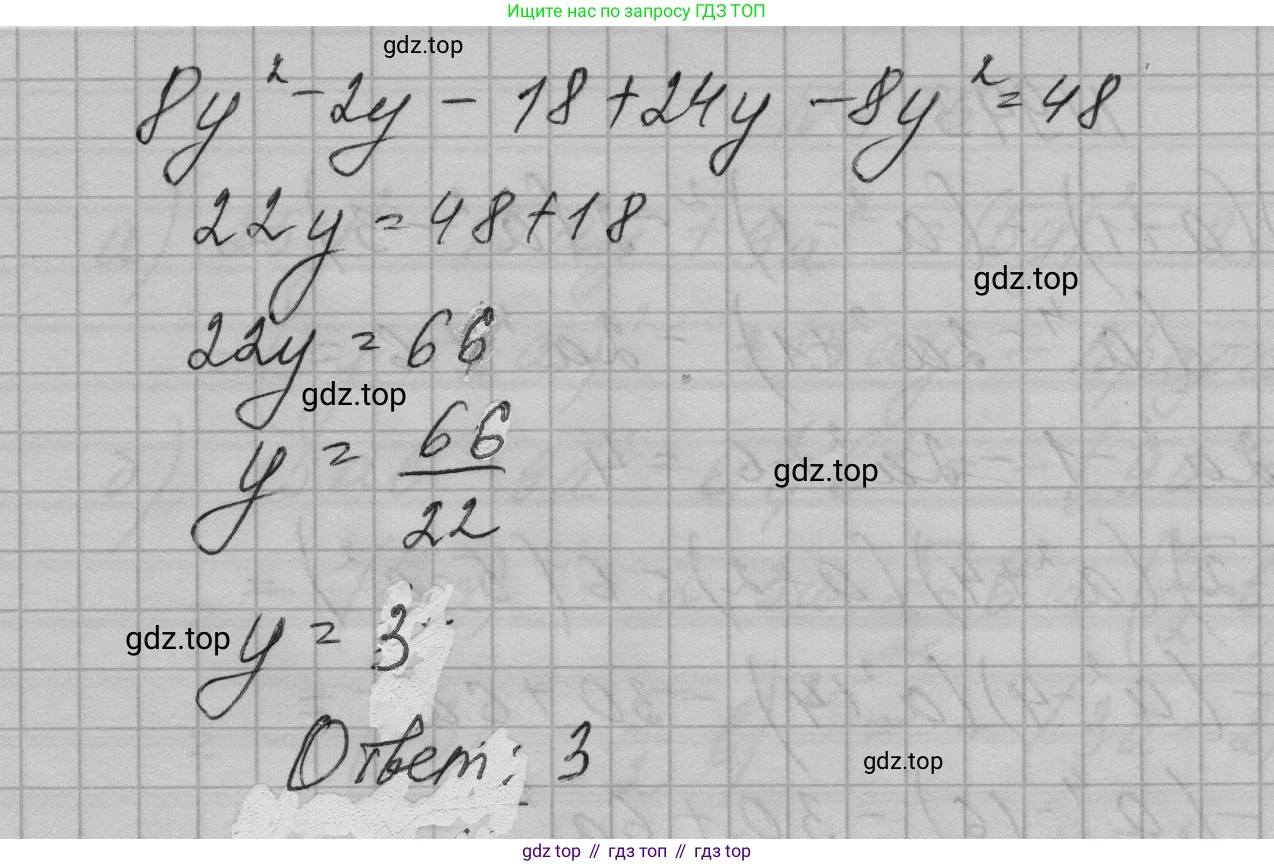 Ищите нас по запросу ГДЗ ТОП
gdz.top
8y² - 2y - 18 + 24y - 8y² = 48
22y = 48 + 18
gdz.top
22y = 66
gdz.top
y = 66/22
gdz.top
gdz.top
y = 3
Ответ: 3
gdz.top
gdz top // гдз топ // gdz top